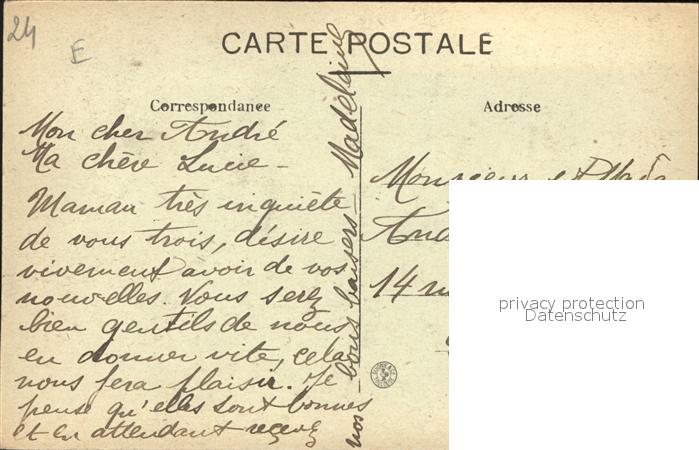 24
E
CARTE POSTALE
Correspondance
Adresse
Mon cher André
Ma chère Lucie -
Maman très inquiète
de vous trois, désire
vivement avoir de vos
nouvelles. Vous serez
bien gentils de nous
en donner vite, cela
nous fera plaisir. Je
pense qu'elles sont bonnes
et en attendant recevez
nos bons baisers - Madeleine
Monsieur et
14
privacy protection
Datenschutz